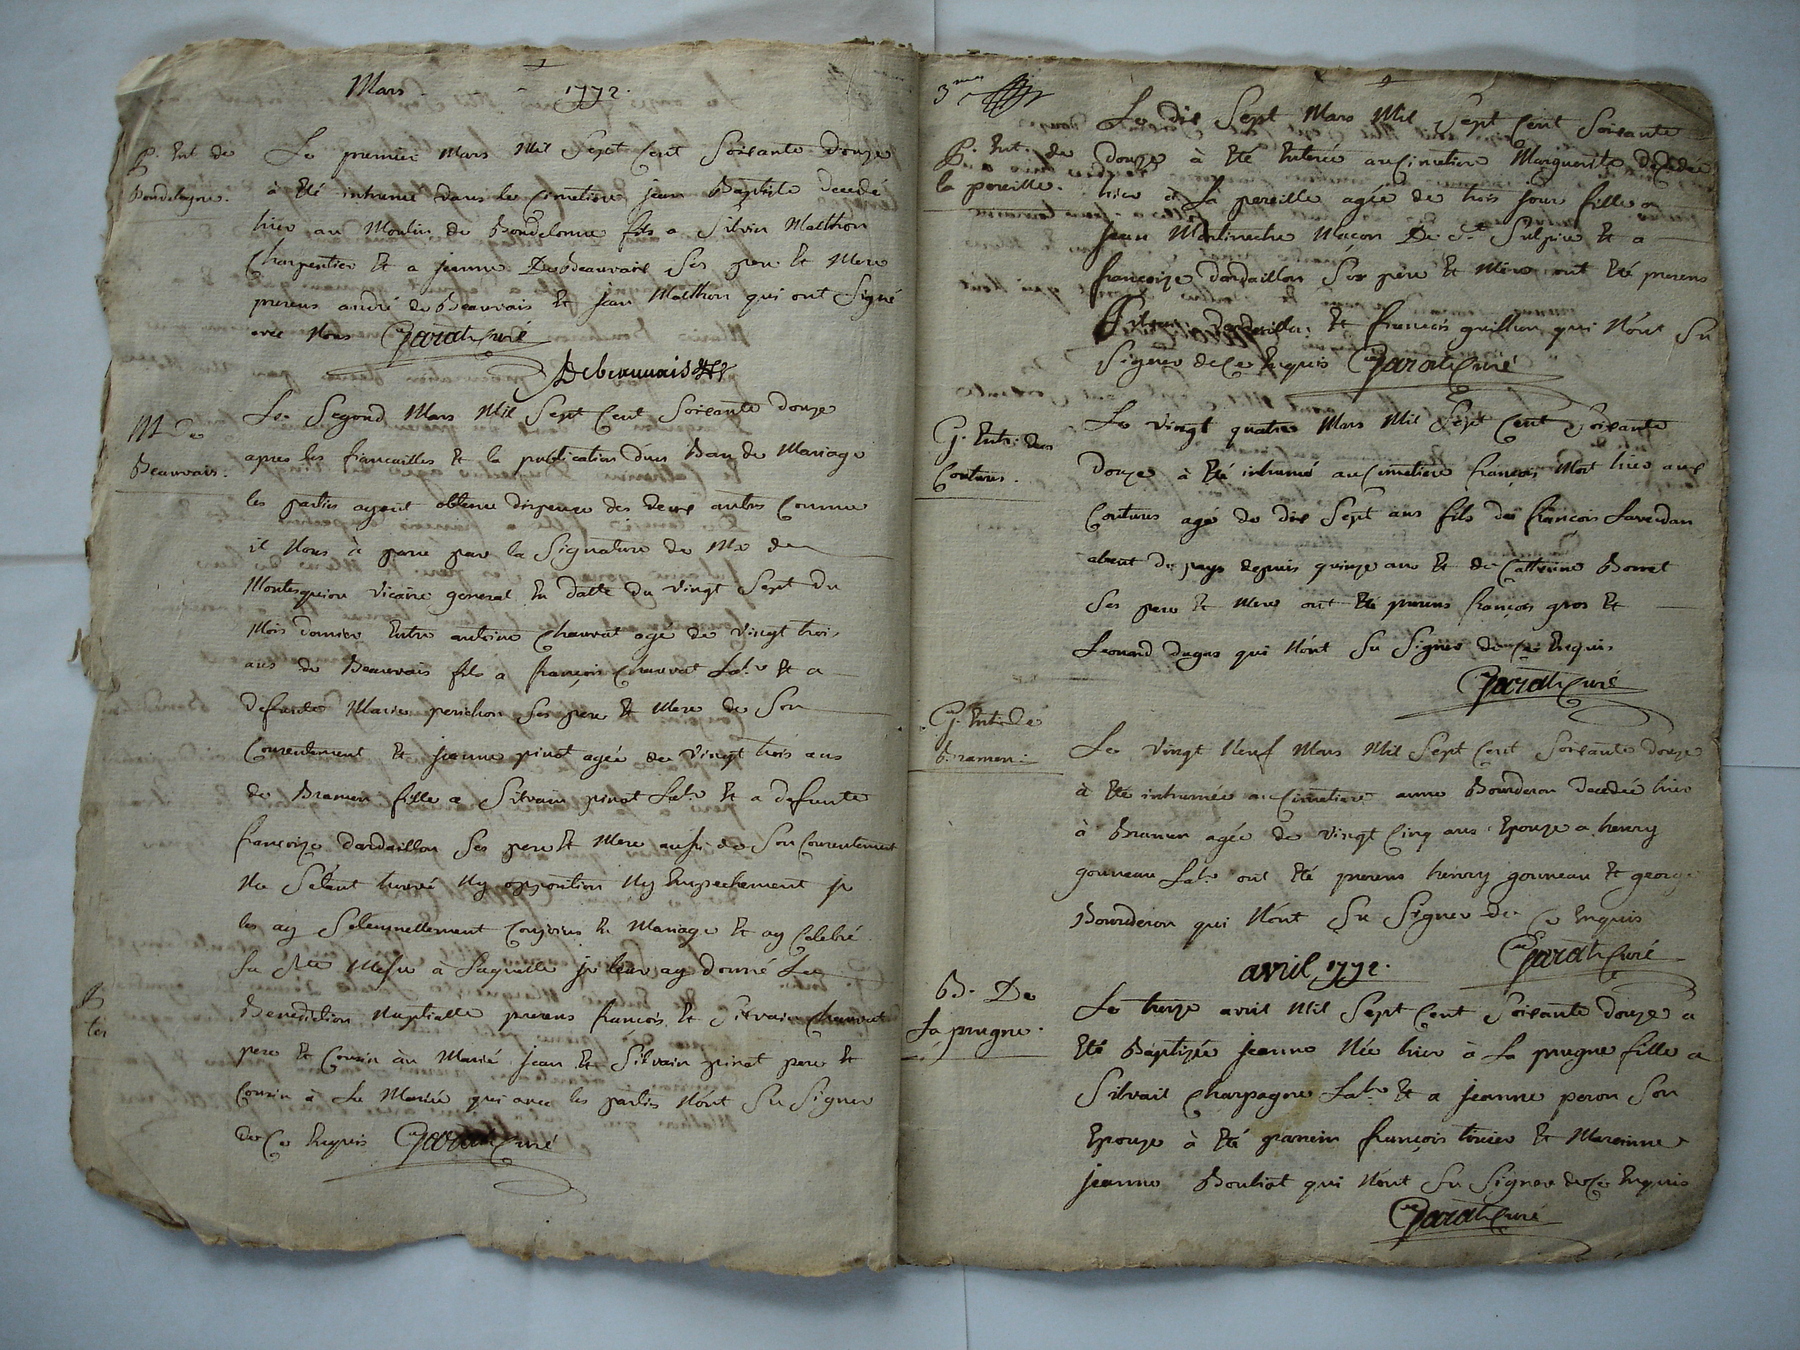 Mars - 1772.
P. Ent de
Bondelogne.
Le premier Mars Mil Sept Cent Soixante douze
à Eté inhumé dans le cimetiere jean Baptiste decedé
hier au Moulin de Bondelonne fils a Silvin Malthon
Charpentier Et a jeanne DeBeauvais Ses pere Et Mere
presens andré de Beauvais Et jean Malthon qui ont Signé
avec Nous Garat Curé
Debeauvais
M De
Beauvais.
Le Segond Mars Mil Sept Cent Soixante douze
apres les fiancailles Et la publication d'un Ban de Mariage
les parties ayant obtenu dispense des deux autres Comme
il Nous à paru par la Signature de Mr de
Montesquiou Vicaire general En datte du Vingt Sept du
Mois dernier Entre antoine Chauvat age de Vingt trois
ans de Beauvais fils a françois Chauvat Labr Et a
defunte Marie perichon Ses pere Et Mere de Son
Consentement Et jeanne pinot agée de Vingt trois ans
de Bramen fille a Silvain pinot Labr Et a defunte
françoise dardaillon Ses pere Et Mere aussi de Son Consentement
Ne S'étant trouvé Ny opposition Ny Empechement je
les ay Solennellement Conjoins En Mariage Et ay Celebré
La Ste Messe à Laquelle je leur ay donné La
Benediction Nuptialle presens françois Et Silvain Chauvat
pere Et Cousin au Marié jean Et Silvain pinot pere Et
Cousin à La Mariée qui avec les parties N'ont Su Signer
de Ce Enquis Garat Curé
3me
P. Ent. de
la poreille.
Le dix Sept Mars Mil Sept Cent Soixante
douze à Eté Enterée au Cimetiere Marguerite decedée
hier à La poreille agée de trois jour fille a
jean Martineche Macon De St Sulpice Et a
françoise dardaillon Ses père Et Mere ont Eté presens
Silvain dardaillon Et francois guillon qui N'ont Su
Signer de Ce Enquis Garat Curé
G. Entr. des
Coutures.
Le Vingt quatre Mars Mil Sept Cent Soixante
douze à Eté inhumé au Cimetiere françois Mort hier aux
Coutures agé de dix Sept ans fils de françois Laverdan
absent du pays depuis quinze ans Et de Catherine Bonnet
Ses pere Et Mere ont Eté presens françois gros Et
Leonard dugas qui N'ont Su Signer de Ce Enquis.
Garat Curé
G. Entr de
Bramen.
Le Vingt Neuf Mars Mil Sept Cent Soixante douze
à Eté inhumée au Cimetiere anne Bourderon decedée hier
à Bramen agée de Vingt Cinq ans Epouze a henry
gouneau Labr ont Eté presens henry gouneau Et george
Bourderon qui N'ont Su Signer de Ce Enquis
Garat Curé
avril 1772.
B. De
La prugne.
Le treize avril Mil Sept Cent Soixante douze a
Eté Baptizée jeanne Née hier à La prugne fille a
Silvait Charpagne Labr Et a jeanne peron Son
Epouze à Eté parein françois tixier Et Mareinne
jeanne Boubiat qui N'ont Su Signer de Ce Enquis
Garat Curé